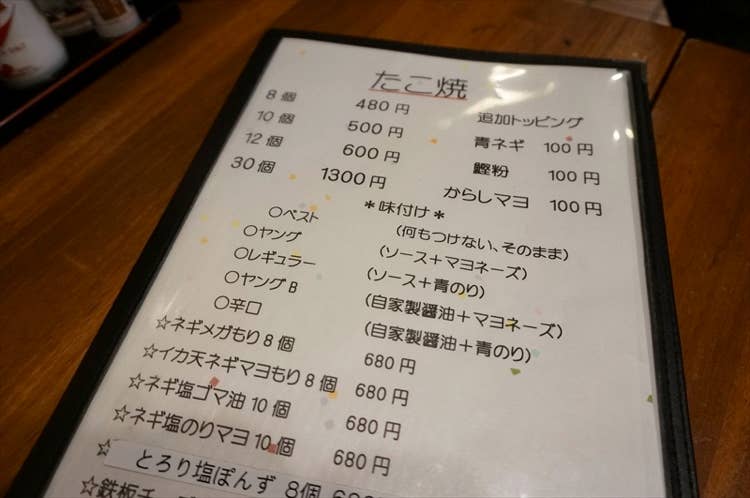 たこ焼
8個 480円
10個 500円
12個 600円
30個 1300円
追加トッピング
青ネギ 100円
鰹粉 100円
からしマヨ 100円
＊味付け＊
○ベスト (何もつけない、そのまま)
○ヤング (ソース＋マヨネーズ)
○レギュラー (ソース＋青のり)
○ヤングB (自家製醤油＋マヨネーズ)
○辛口 (自家製醤油＋青のり)
☆ネギメガもり8個 680円
☆イカ天ネギマヨもり8個 680円
☆ネギ塩ゴマ油10個 680円
☆ネギ塩のりマヨ10個 680円
☆とろり塩ぽんず 8個
☆鉄板